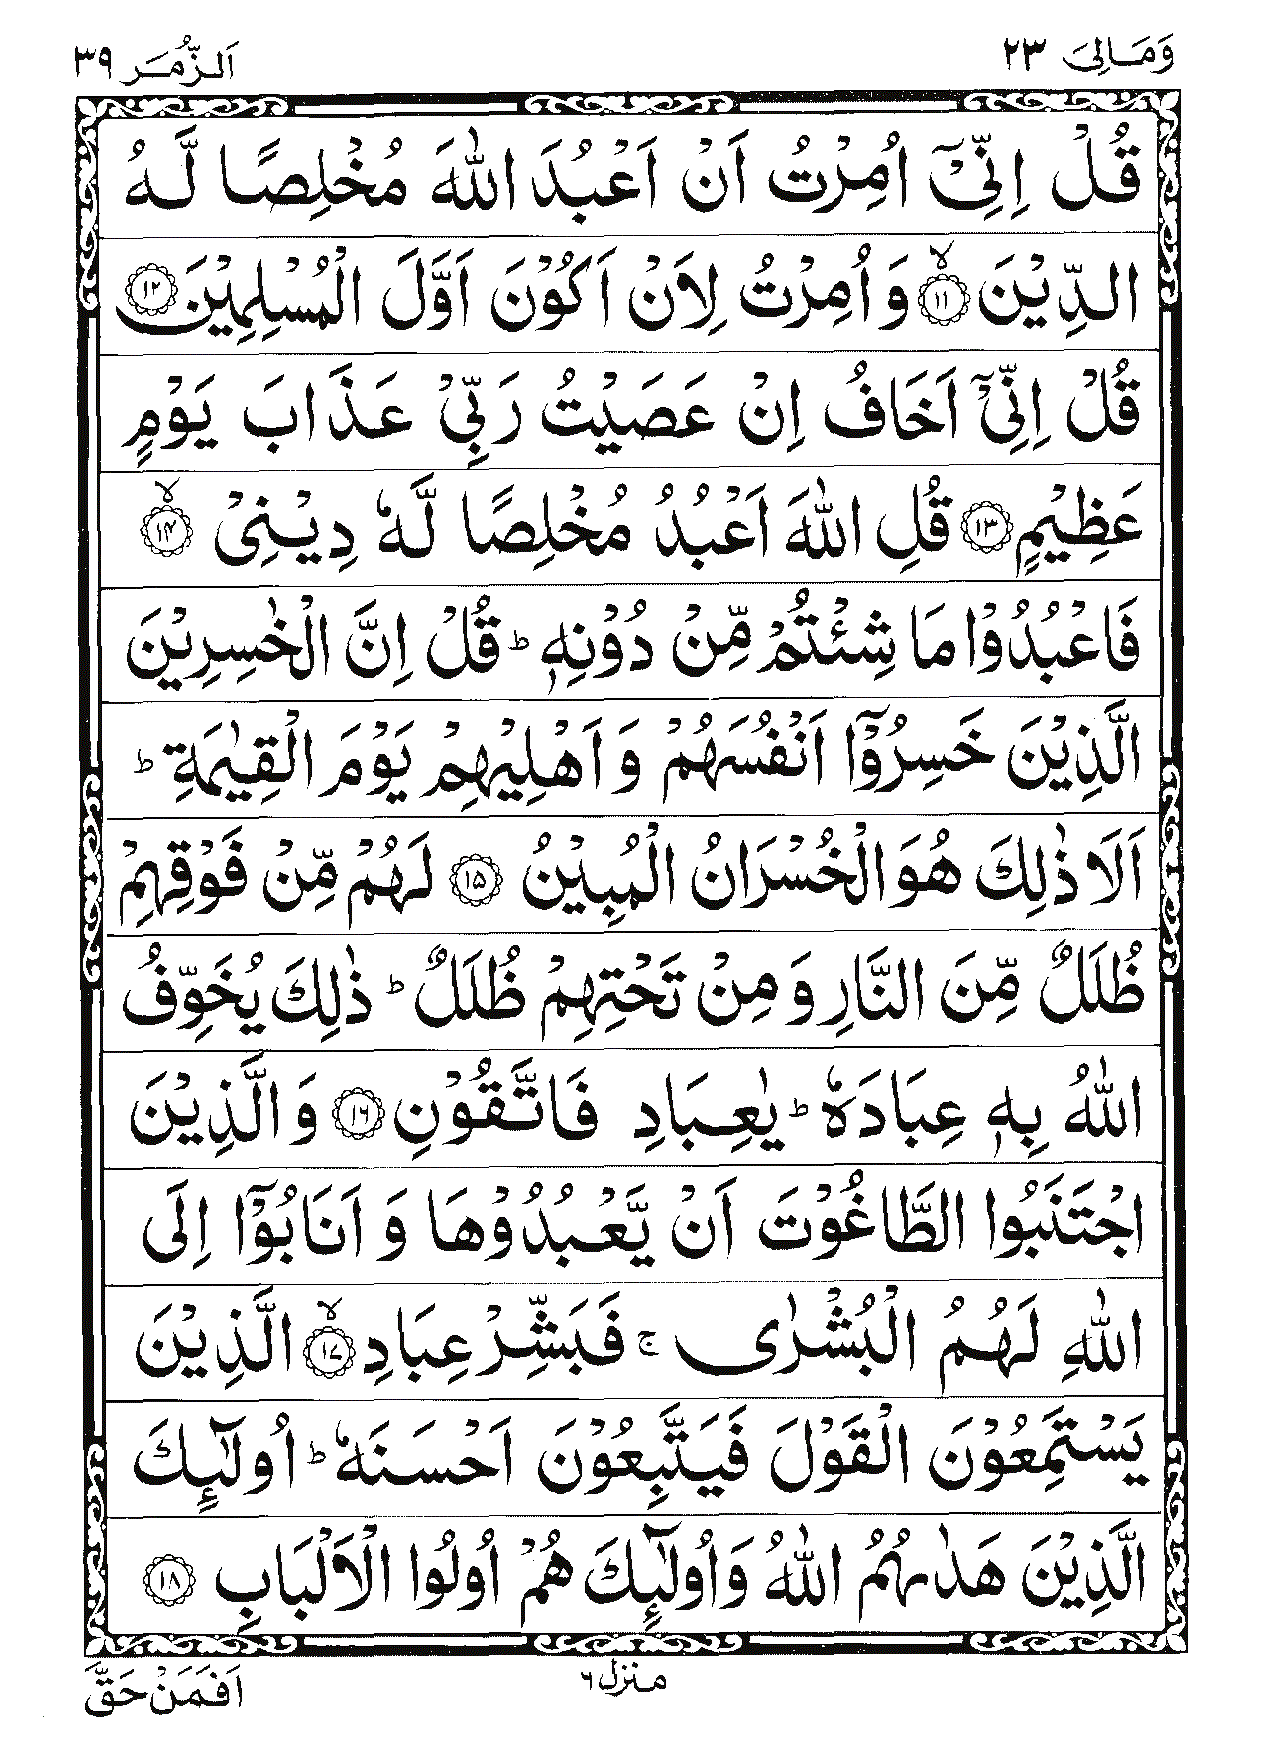 وَمَالِیَ ٢٣ اَلزُّمَر ٣٩
قُلْ اِنِّیْۤ اُمِرْتُ اَنْ اَعْبُدَ اللّٰهَ مُخْلِصًا لَّهُ
الدِّیْنَ ۙ﴿۱۱﴾ وَ اُمِرْتُ لِاَنْ اَكُوْنَ اَوَّلَ الْمُسْلِمِیْنَ ﴿۱۲﴾
قُلْ اِنِّیْۤ اَخَافُ اِنْ عَصَیْتُ رَبِّیْ عَذَابَ یَوْمٍ
عَظِیْمٍ ﴿۱۳﴾ قُلِ اللّٰهَ اَعْبُدُ مُخْلِصًا لَّهٗ دِیْنِیْ ۙ﴿۱۴﴾
فَاعْبُدُوْا مَا شِئْتُمْ مِّنْ دُوْنِهٖ ؕ قُلْ اِنَّ الْخٰسِرِیْنَ
الَّذِیْنَ خَسِرُوْۤا اَنْفُسَهُمْ وَ اَهْلِیْهِمْ یَوْمَ الْقِیٰمَةِ ؕ
اَلَا ذٰلِكَ هُوَ الْخُسْرَانُ الْمُبِیْنُ ﴿۱۵﴾ لَهُمْ مِّنْ فَوْقِهِمْ
ظُلَلٌ مِّنَ النَّارِ وَ مِنْ تَحْتِهِمْ ظُلَلٌ ؕ ذٰلِكَ یُخَوِّفُ
اللّٰهُ بِهٖ عِبَادَهٗ ؕ یٰعِبَادِ فَاتَّقُوْنِ ﴿۱۶﴾ وَ الَّذِیْنَ
اجْتَنَبُوا الطَّاغُوْتَ اَنْ یَّعْبُدُوْهَا وَ اَنَابُوْۤا اِلَی
اللّٰهِ لَهُمُ الْبُشْرٰی ۚ فَبَشِّرْ عِبَادِ ۙ﴿۱۷﴾ الَّذِیْنَ
یَسْتَمِعُوْنَ الْقَوْلَ فَیَتَّبِعُوْنَ اَحْسَنَهٗ ؕ اُولٰٓئِكَ
الَّذِیْنَ هَدٰىهُمُ اللّٰهُ وَ اُولٰٓئِكَ هُمْ اُولُوا الْاَلْبَابِ ﴿۱۸﴾
منزل ٦
اَفَمَنْ حَقَّ